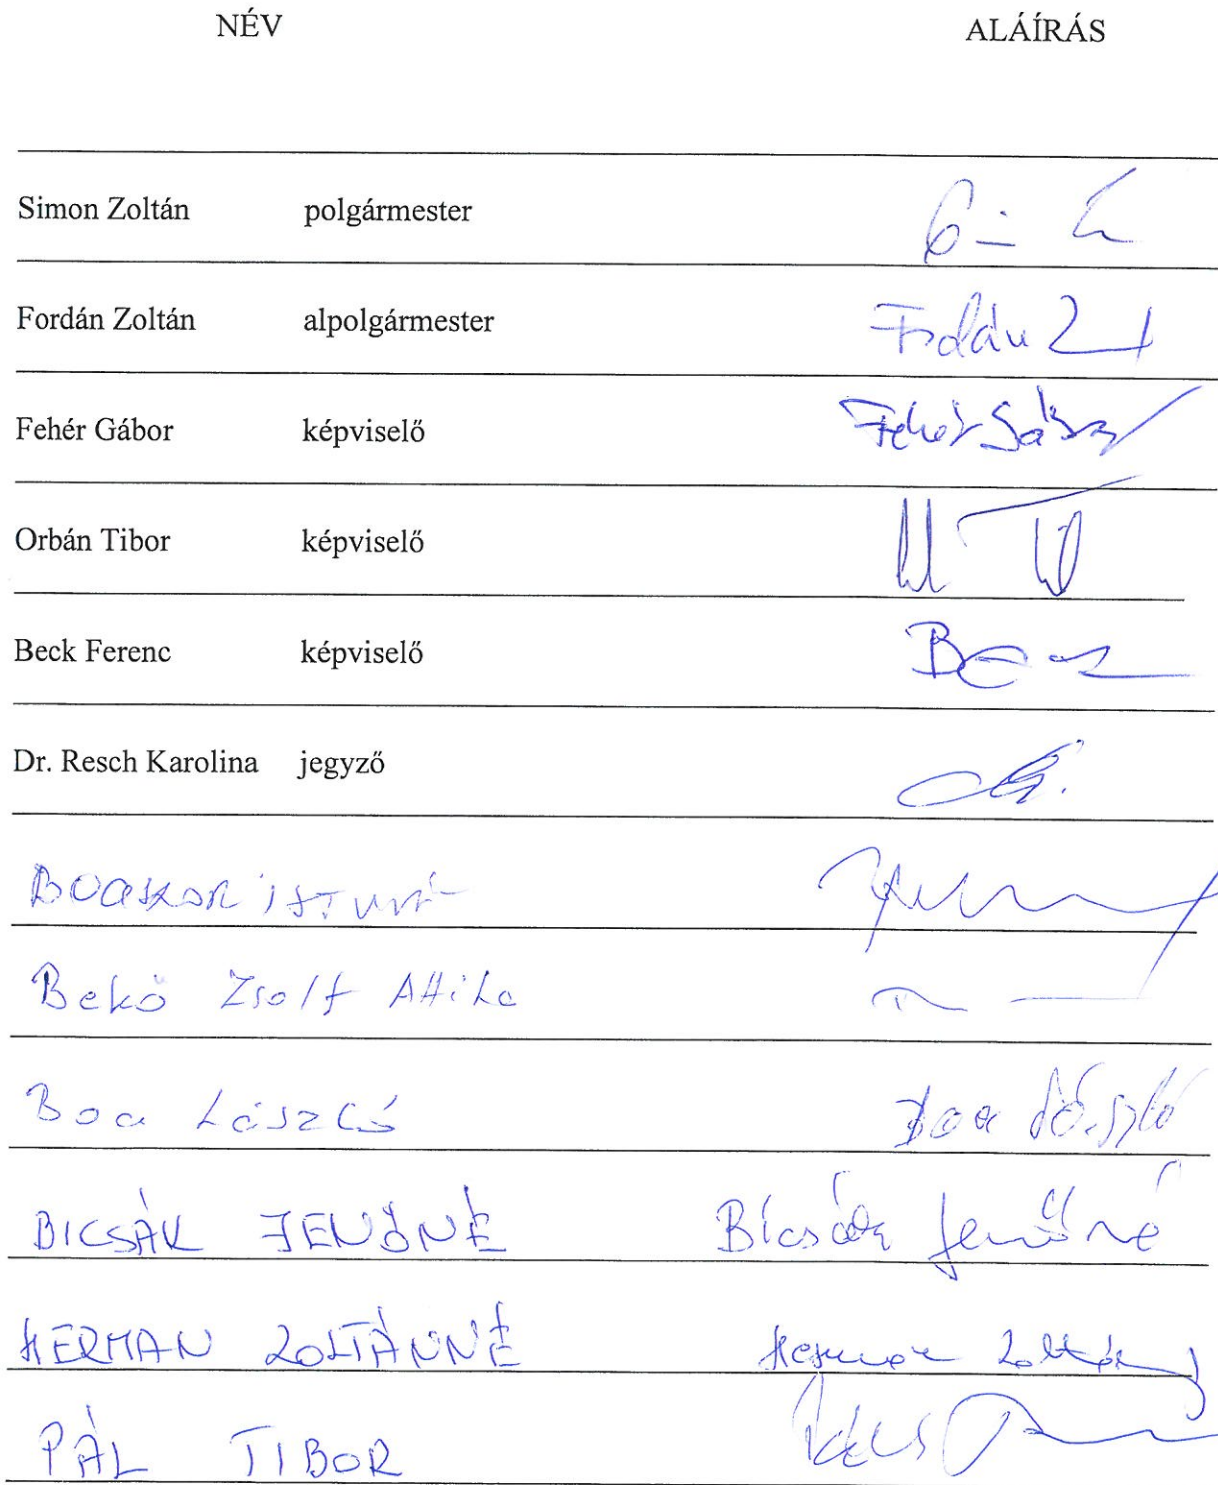 NÉV ALÁÍRÁS
Simon Zoltán polgármester
Fordán Zoltán alpolgármester Fordán Z
Fehér Gábor képviselő Fehér Gábor
Orbán Tibor képviselő
Beck Ferenc képviselő
Dr. Resch Karolina jegyző
Bekő Zsolt Attila
Boa László Boa László
BICSÁK JENŐNÉ Bicsák Jenőné
HERMAN ZOLTÁNNÉ Herman Zoltán
PÁL TIBOR